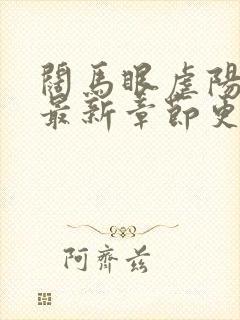 閱馬眼虐陽
最新章節史
阿齊茲